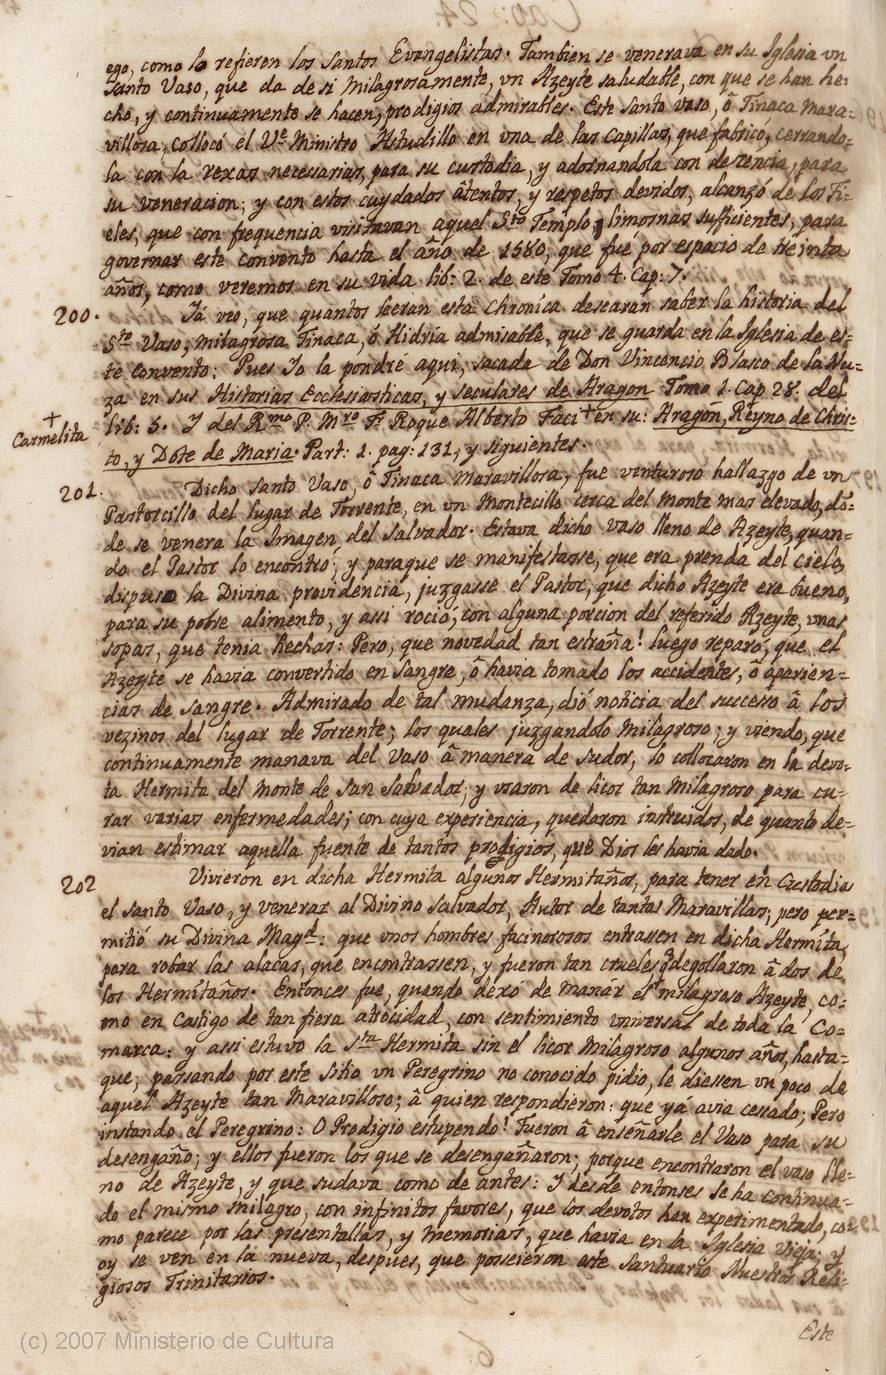 ego, como lo refieren los Santos Evangelistas. Tambien se venerava en su Iglesia vn
Santo Vaso, que da de si Milagrosamente, vn Azeyte saludable, con que se han he-
cho, y continuamente se hacen, prodigios admirables. Este Santo vaso, ô Tinaca Mara-
villosa, collocó el Ve. Ministro Hetudillo en vna de las Capillas, que fabricó, cerrando-
la con la rexas necesarias, para su custodia, y adornandola con decencia, para
su veneracion; y con estos cuydados âtentos, y respetos devidos, alcanzó de los Fi-
eles, que con frequencia visitavan aquel Sto Templo, limosnas sufficientes, para
governar este convento hasta el año de 1580, que fué por espacio de treinta
años, como veremos en su vida lib: 2. de este Tomo 4. Cap: 7.
200. Yá veo, que quantos leeran esta Chronica desearán saber la historia del
Sto Vaso, milagrosa Tinaca, ó Hidria admirable, que se guarda en la Iglesia de es-
te convento: Pues Yo la pondré aqui, sacada de Don Vincencio Blasco de la Nu-
za en sus Historias Ecclesiasticas, y seculares de Aragon Tomo 1. Cap 28. del
lib: 5. Y del Rmo P. Mro Fr. Roque Alberto Faci + en su: Aragon, Reyno de Chris-
+
Carmelita
to, y Dote de Maria. Part: 1. pag: 131, y siguientes.
201. Dicho Santo Vaso, ô Tinaca Maravillosa, fue venturoso hallazgo de vn
Pastorcillo del lugar de Torrente, en vn Montecillo cerca del Monte mas elevado, dõ-
de se venera la Imagen del Salvador. Estava dicho vaso lleno de Azeyte, quan-
do el Pastor lo encontró; y paraque se manifestasse, que era prenda del Cielo,
dispuso la Divina providencia, juzgasse el Pastor, que dicho Azeyte era bueno,
para su pobre alimento, y assi roció, con alguna porcion del referido Azeyte, vnas
sopas, que tenia hechas: Pero, que novedad tan estraña! luego reparó, que el
Azeyte se havia convertido en sangre, ô havia tomado los accidentes, ô aparien-
cias de sangre. Admirado de tal mudanza, dió noticia del sucesso â los
vezinos del lugar de Torrente; los quales juzgandolo Milagroso; y viendo, que
continuamente manava del Vaso â manera de sudor, lo collocaron en la devo-
ta Hermita del Monte de San Salvador, y vsaron de licor tan Milagroso para cu-
rar varias enfermedades; con cuya experiencia, quedaron instruidos, de quanto de-
vian estimar aquella fuente de tantos prodigios, que Dios les havia dado.
202 Vivieron en dicha Hermita algunos Hermitaños, para tener en Custodia
el Santo Vaso, y venerar al Divino Salvador, Autor de tantas Maravillas; pero per-
mitió su Divina Magd: que vnos hombres facinorosos entrassen en dicha Hermita,
para robar las alacas, que encontrassen, y fueron tan crueles q degollaron â dos de
los Hermitaños. Entonces fue, quando dexó de manar el milagroso Azeyte, co-
mo en Castigo de tan fiera atrocidad, con sentimiento vniversal de toda la Co-
marca: y assi estuvo la Sta Hermita sin el licor Milagroso algunos años, hasta-
que, passando por este Sitio vn Peregrino no conocido pidio, le diessen vn poco de
aquel Azeyte tan Maravilloso; â quien respondieron: que yá avia cessado; Pero
instando el Peregrino: O Prodigio estupendo! Fueron â enseñarle el Vaso para su
desengaño; y ellos fueron los que se desengañaron; porque encontraron el vaso lle-
no de Azeyte, y que sudava como de antes: Y desde entonses se ha continua-
do el mismo milagro, con infinitos favores, que los devotos han experimentado, co-
mo parece por las presentallas, y memorias, que havia en la Iglesia Vieja: y
oy se ven en la nueva, despues, que posseieron este Santuario Nuestros Reli-
giosos Trinitarios.
Este
(c) 2007 Ministerio de Cultura